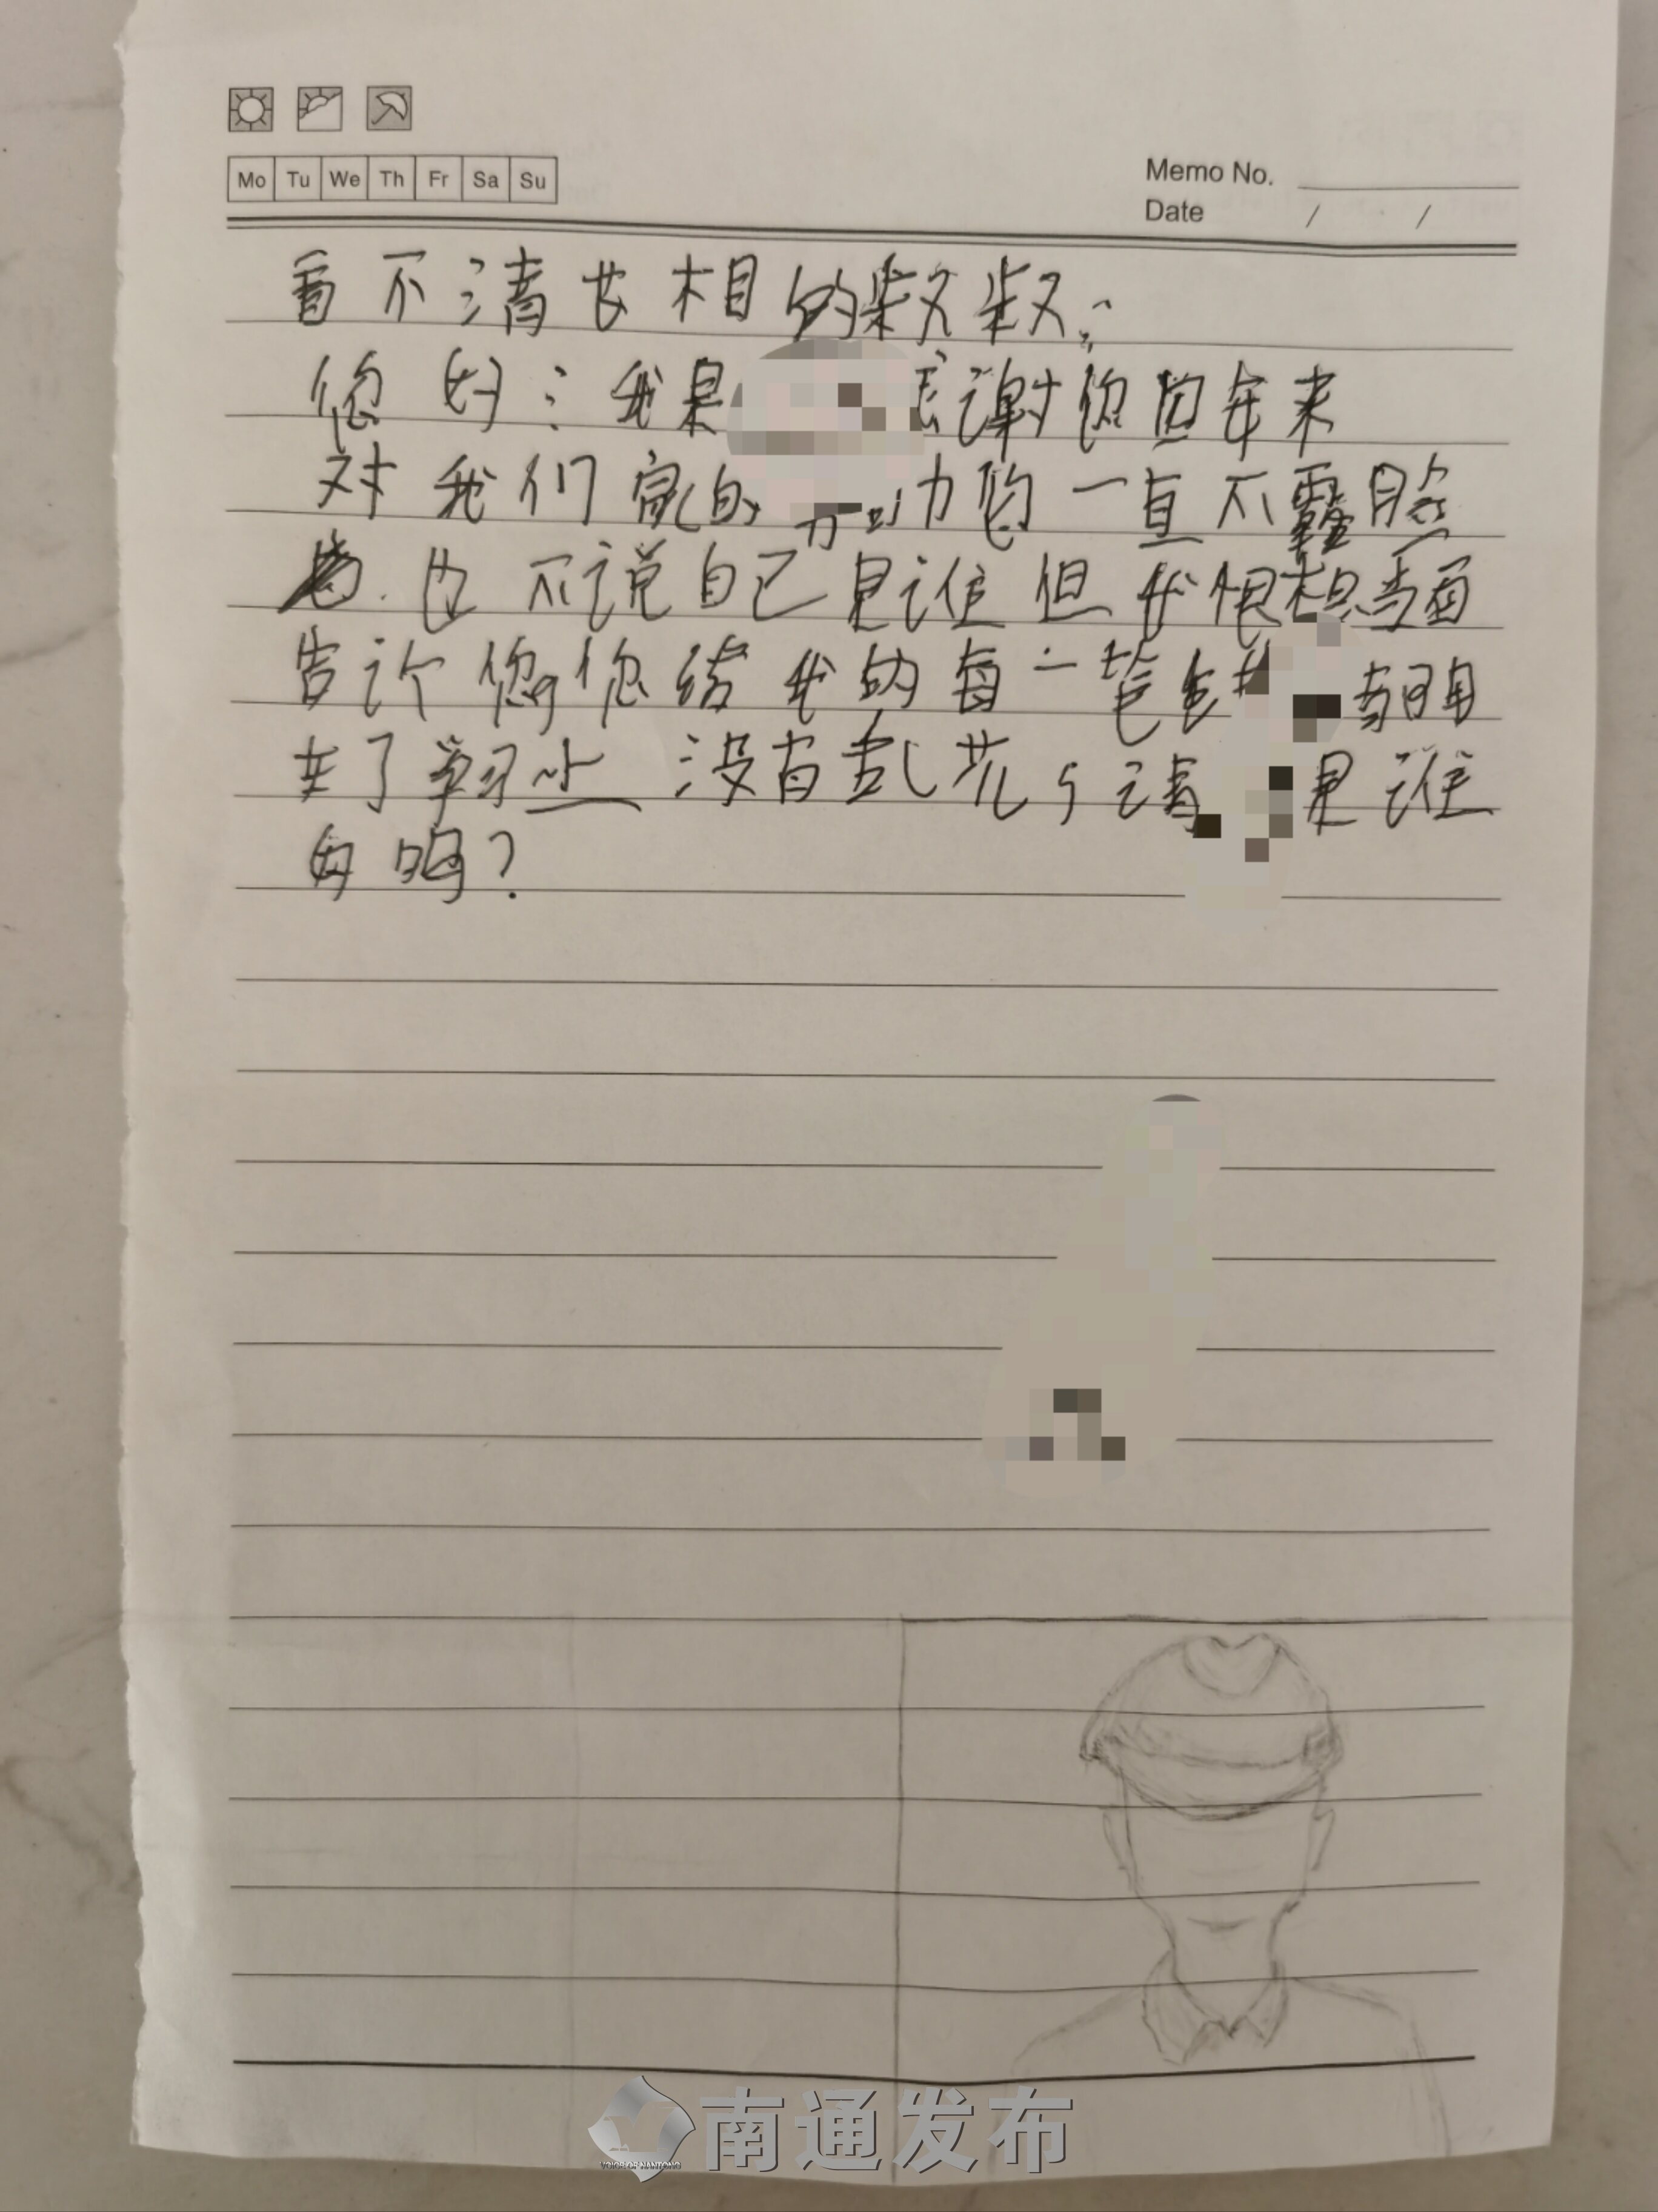 Mo Tu We Th Fr Sa Su
Memo No.
Date / /
看不清长相的叔叔:
您好:我是 谢您四年来
对我们家的 助您一直不露脸
也不说自己是谁但我很想当面
告诉您,您给我的每一笔钱 都用
在了学习上没有乱花,请 是谁
的吗?
南通发布
VOICE OF NANTONG